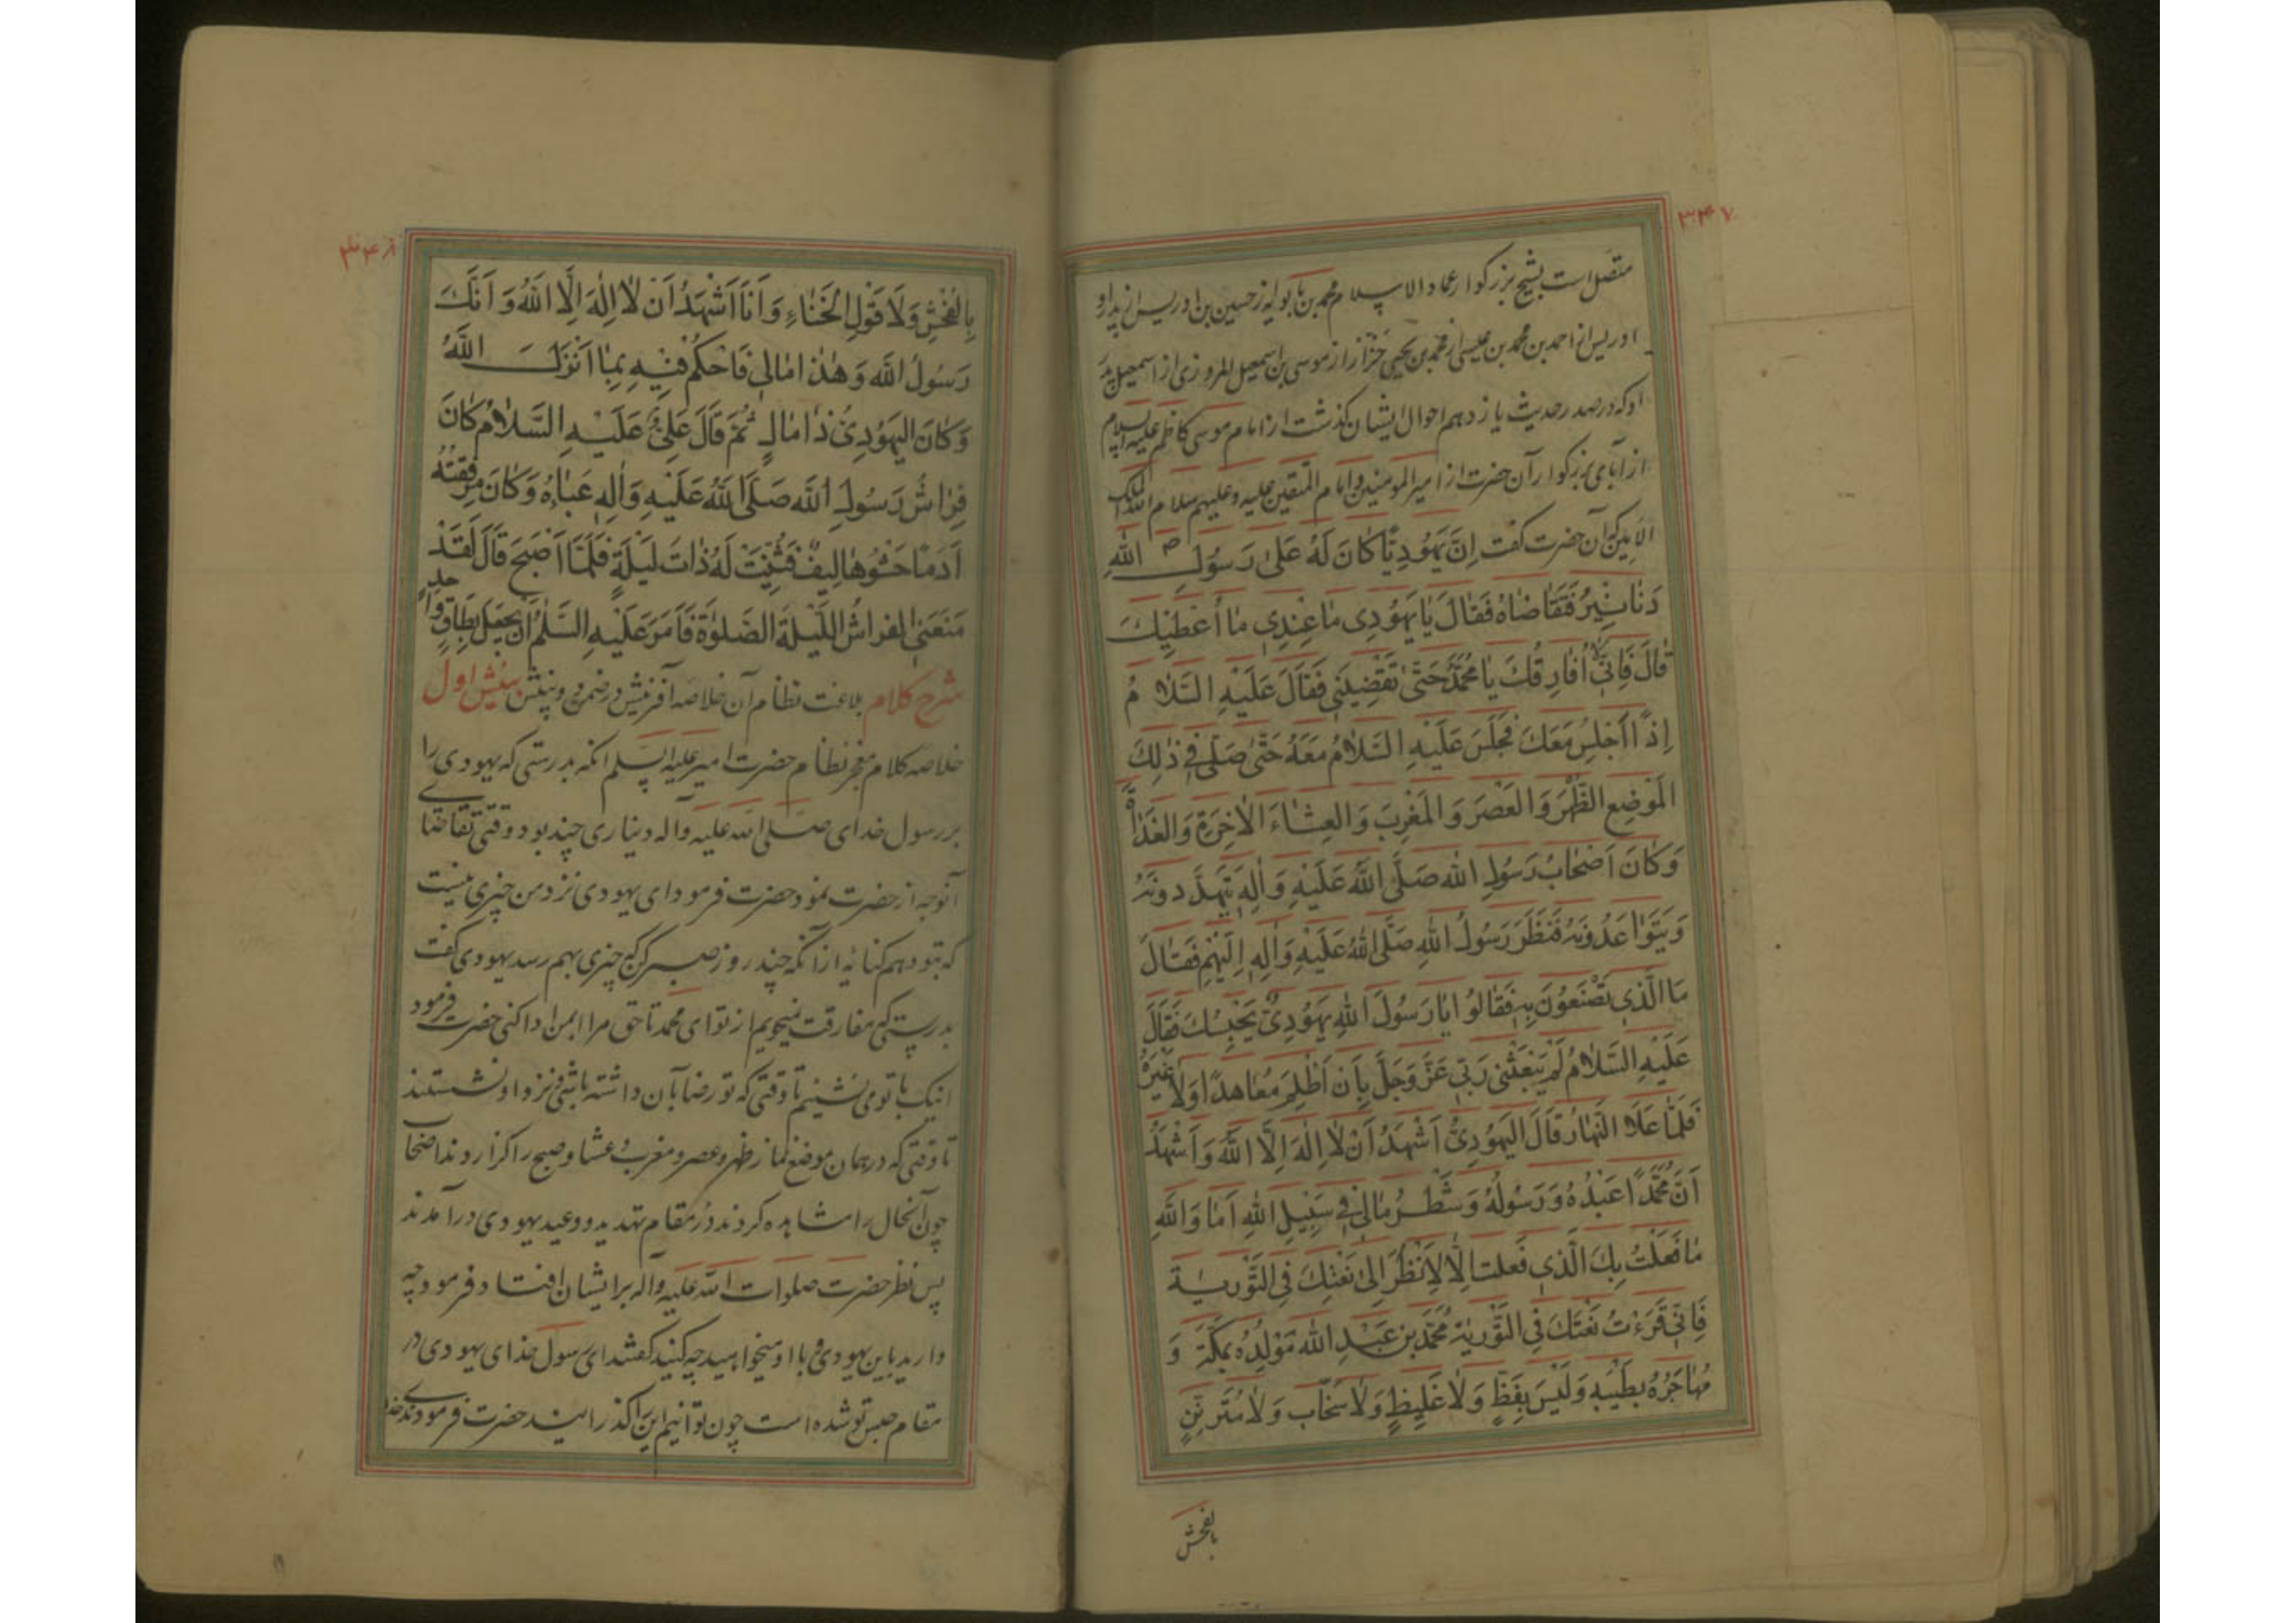 ۳۴۷
متصل است بشیخ بزرگوار عماد الاسلام محمد بن بابویه از حسین بن ادریس از پدر او
ادریس از احمد بن محمد بن عیسی از محمد بن یحیی خزاز از موسی بن اسمعیل المروزی از اسمعیل پدر
او که در صدر حدیث یازدهم احوال ایشان گذشت از امام موسی کاظم علیه السلام
از آبای بزرگوار آن حضرت از امیر المومنین و امام المتقین علیه و علیهم سلام الله الملک
الامین که آن حضرت گفت اِنَّ يَهُودِيًّا كَانَ لَهُ عَلىٰ رَسُولِ اللهِ ص
دَنَانِيرُ فَتَقَاضَاهُ فَقَالَ يَا يَهُودِى مَا عِنْدِى مَا أُعْطِيكَ
قَالَ فَاِنّي لَا أُفَارِقُكَ يَا مُحَمَّدُ حَتّىٰ تَقْضِيَنِى فَقَالَ عَلَيْهِ السَّلَامُ
اِذًا اَجْلِسُ مَعَكَ فَجَلَسَ عَلَيْهِ السَّلَامُ مَعَهُ حَتّىٰ صَلّىٰ فِي ذٰلِكَ
الْمَوْضِعِ الظُّهْرَ وَالْعَصْرَ وَالْمَغْرِبَ وَالْعِشَاءَ الْاٰخِرَةَ وَالْغَدَاةَ
وَكَانَ اَصْحَابُ رَسُولِ اللهِ صَلَّى اللهُ عَلَيْهِ وَاٰلِهٖ يَتَهَدَّدُونَهُ
وَيَتَوَاعَدُونَهُ فَنَظَرَ رَسُولُ اللهِ صَلَّى اللهُ عَلَيْهِ وَاٰلِهٖ اِلَيْهِمْ فَقَالَ
مَا الَّذِي تَصْنَعُونَ بِهٖ فَقَالُوا يَا رَسُولَ اللهِ يَهُودِيٌّ يَحْبِسُكَ فَقَالَ
عَلَيْهِ السَّلَامُ لَمْ يَبْعَثْنِى رَبّي عَزَّ وَجَلَّ بِاَنْ اَظْلِمَ مُعَاهِدًا وَلَا غَيْرَهُ
فَلَمَّا عَلَا النَّهَارُ قَالَ الْيَهُودِيُّ اَشْهَدُ اَنْ لَا اِلٰهَ اِلَّا اللهُ وَاَشْهَدُ
اَنَّ مُحَمَّدًا عَبْدُهُ وَرَسُولُهُ وَشَطْرُ مَالِي فِي سَبِيلِ اللهِ اَمَا وَاللهِ
مَا فَعَلْتُ بِكَ الَّذِي فَعَلْتُ اِلَّا لِاَنْظُرَ اِلىٰ نَعْتِكَ فِي التَّوْرٰيةِ
فَاِنّي قَرَءْتُ نَعْتَكَ فِي التَّوْرٰيةِ مُحَمَّدُ بْنُ عَبْدِ اللهِ مَوْلِدُهُ بِمَكَّةَ وَ
مُهَاجَرُهُ بِطَيْبَهِ وَلَيْسَ بِفَظٍّ وَلَا غَلِيظٍ وَلَا سَخَّابٍ وَلَا مُتَرَنِّنٍ
بالفحش
۳۴۸
بِالْفُحْشِ وَلَا قَوْلِ الْخَنَاءِ وَاَنَا اَشْهَدُ اَنْ لَا اِلٰهَ اِلَّا اللهُ وَاَنَّكَ
رَسُولُ اللهِ وَهٰذَا مَالِي فَاحْكُمْ فِيهِ بِمَا اَنْزَلَ اللهُ
وَكَانَ الْيَهُودِيُّ ذَا مَالٍ ثُمَّ قَالَ عَلِيٌّ عَلَيْهِ السَّلَامُ كَانَ
فِرَاشُ رَسُولِ اللهِ صَلَّى اللهُ عَلَيْهِ وَاٰلِهٖ عَبَاءَهُ وَكَانَ مِرْفَقَتُهُ
اَدَمًا حَشْوُهَا لِيفٌ فَثُنِيَتْ لَهُ ذَاتَ لَيْلَةٍ فَلَمَّا اَصْبَحَ قَالَ لَقَدْ
مَنَعَنِى الْفِرَاشُ اللَّيْلَةَ الصَّلٰوةَ فَاَمَرَ عَلَيْهِ السَّلٰمُ اَنْ يُجْعَلَ بِطَاقٍ وَاحِدٍ
شرح کلام بلاغت نظام آن خلاصه آفرینش در ضمن دو بینش بینش اول
خلاصه کلام معجز نظام حضرت امیر علیه السلم انکه بدرستی که یهودی را
بر رسول خدای صلی الله علیه و آله دیناری چند بود وقتی تقاضای
آنوجه از حضرت نمود حضرت فرمود ای یهودی نزد من چیزی نیست
که بتو دهم کنایه از آنکه چند روز صبر کن که چیزی بهم رسد یهودی گفت
بدرستی که مفارقت نمیجویم از تو ای محمد تا حق مرا بمن ادا کنی حضرت فرمود
اینک با تو می نشینم تا وقتی که تو رضا بآن داشته باشی نزد او نشستند
تا وقتی که در همان موضع نماز ظهر و عصر و مغرب و عشا و صبح را گزاردند اصحاب
چون آنحال را مشاهده کردند در مقام تهدید و وعید یهودی درآمدند
پس نظر حضرت صلوات الله علیه و آله بر ایشان افتاد فرمود چه
دارید باین یهودی و با او میخواهید چه کنید گفتند ای رسول خدای یهودی در
مقام حبس تو شده است چون توانیم این را گذرانید حضرت فرمودند